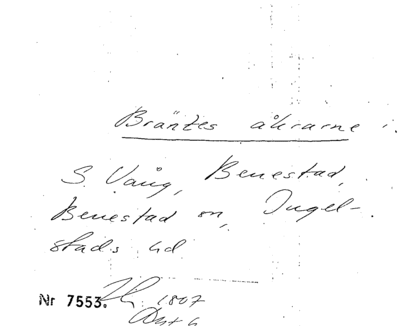 Bräntes åkrarne i
S. Vång, Benestad,
Benestad sn, Ingel-
stads hd
Nr 7553. 1807